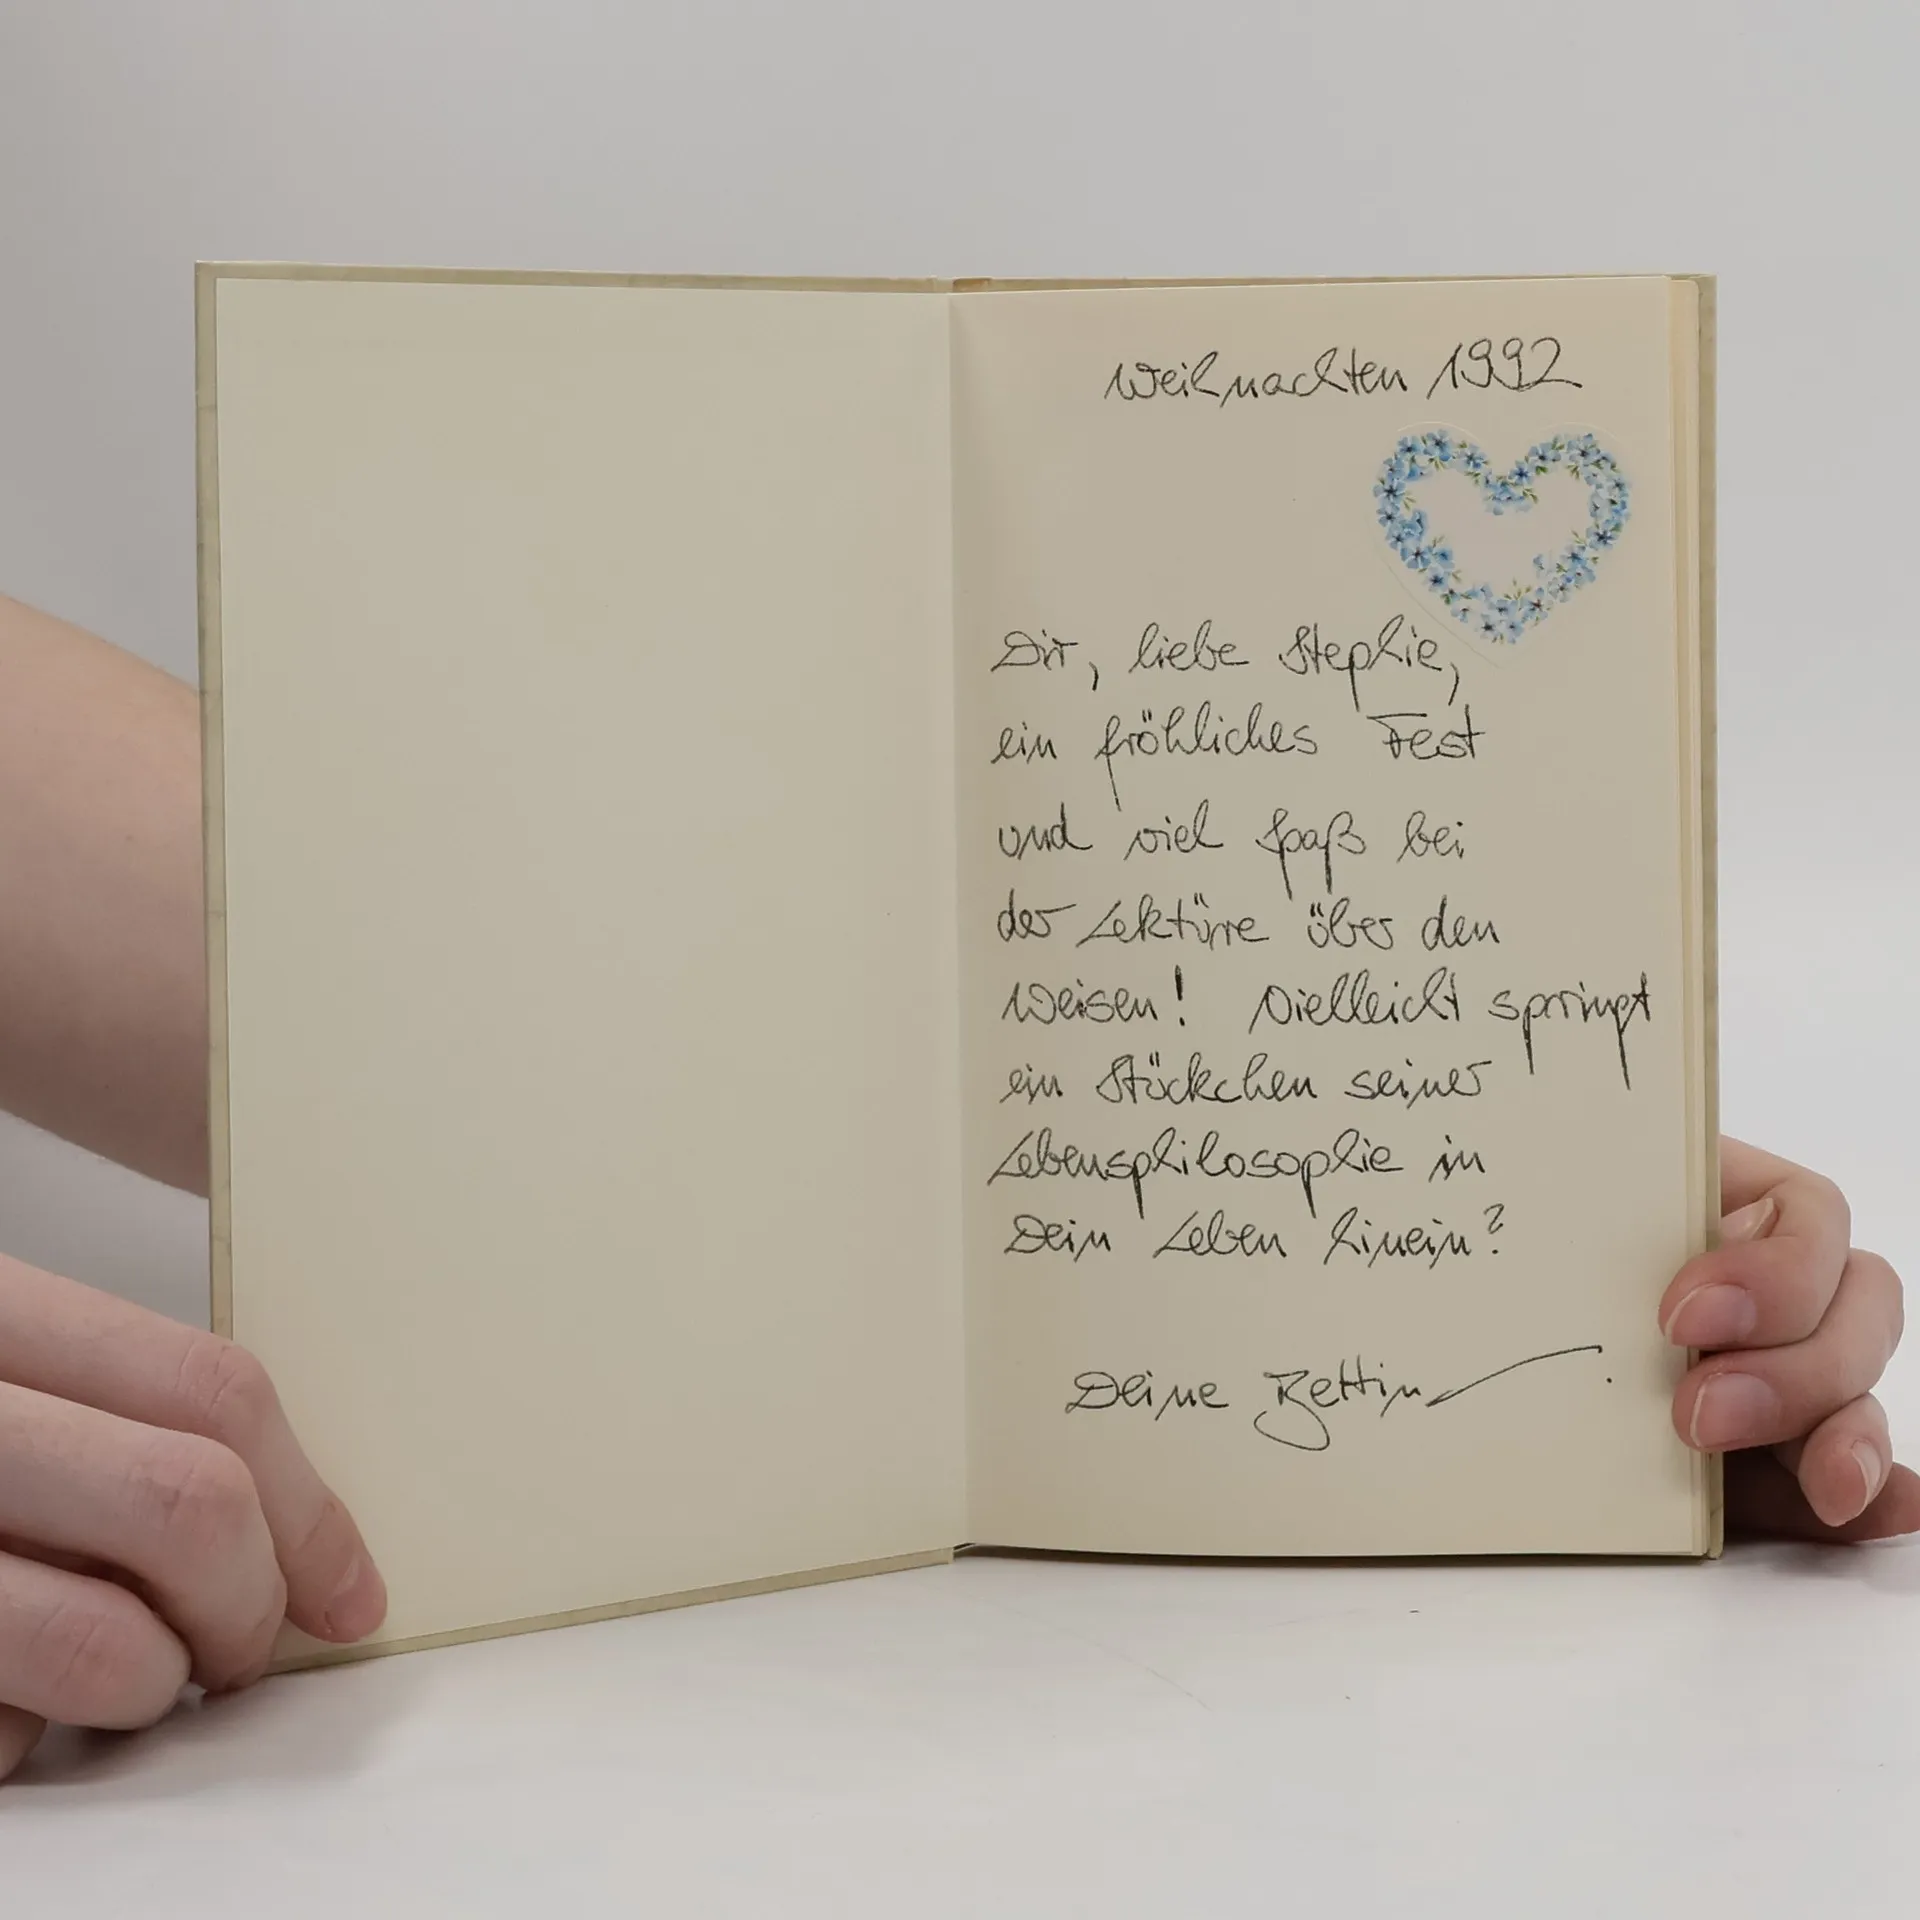 Weihnachten 1992
Dir, liebe Stephie,
ein fröhliches Fest
und viel Spaß bei
der Lektüre über den
Weisen! Vielleicht springt
ein Stückchen seiner
Lebensphilosophie in
Dein Leben hinein?
Deine Bettina